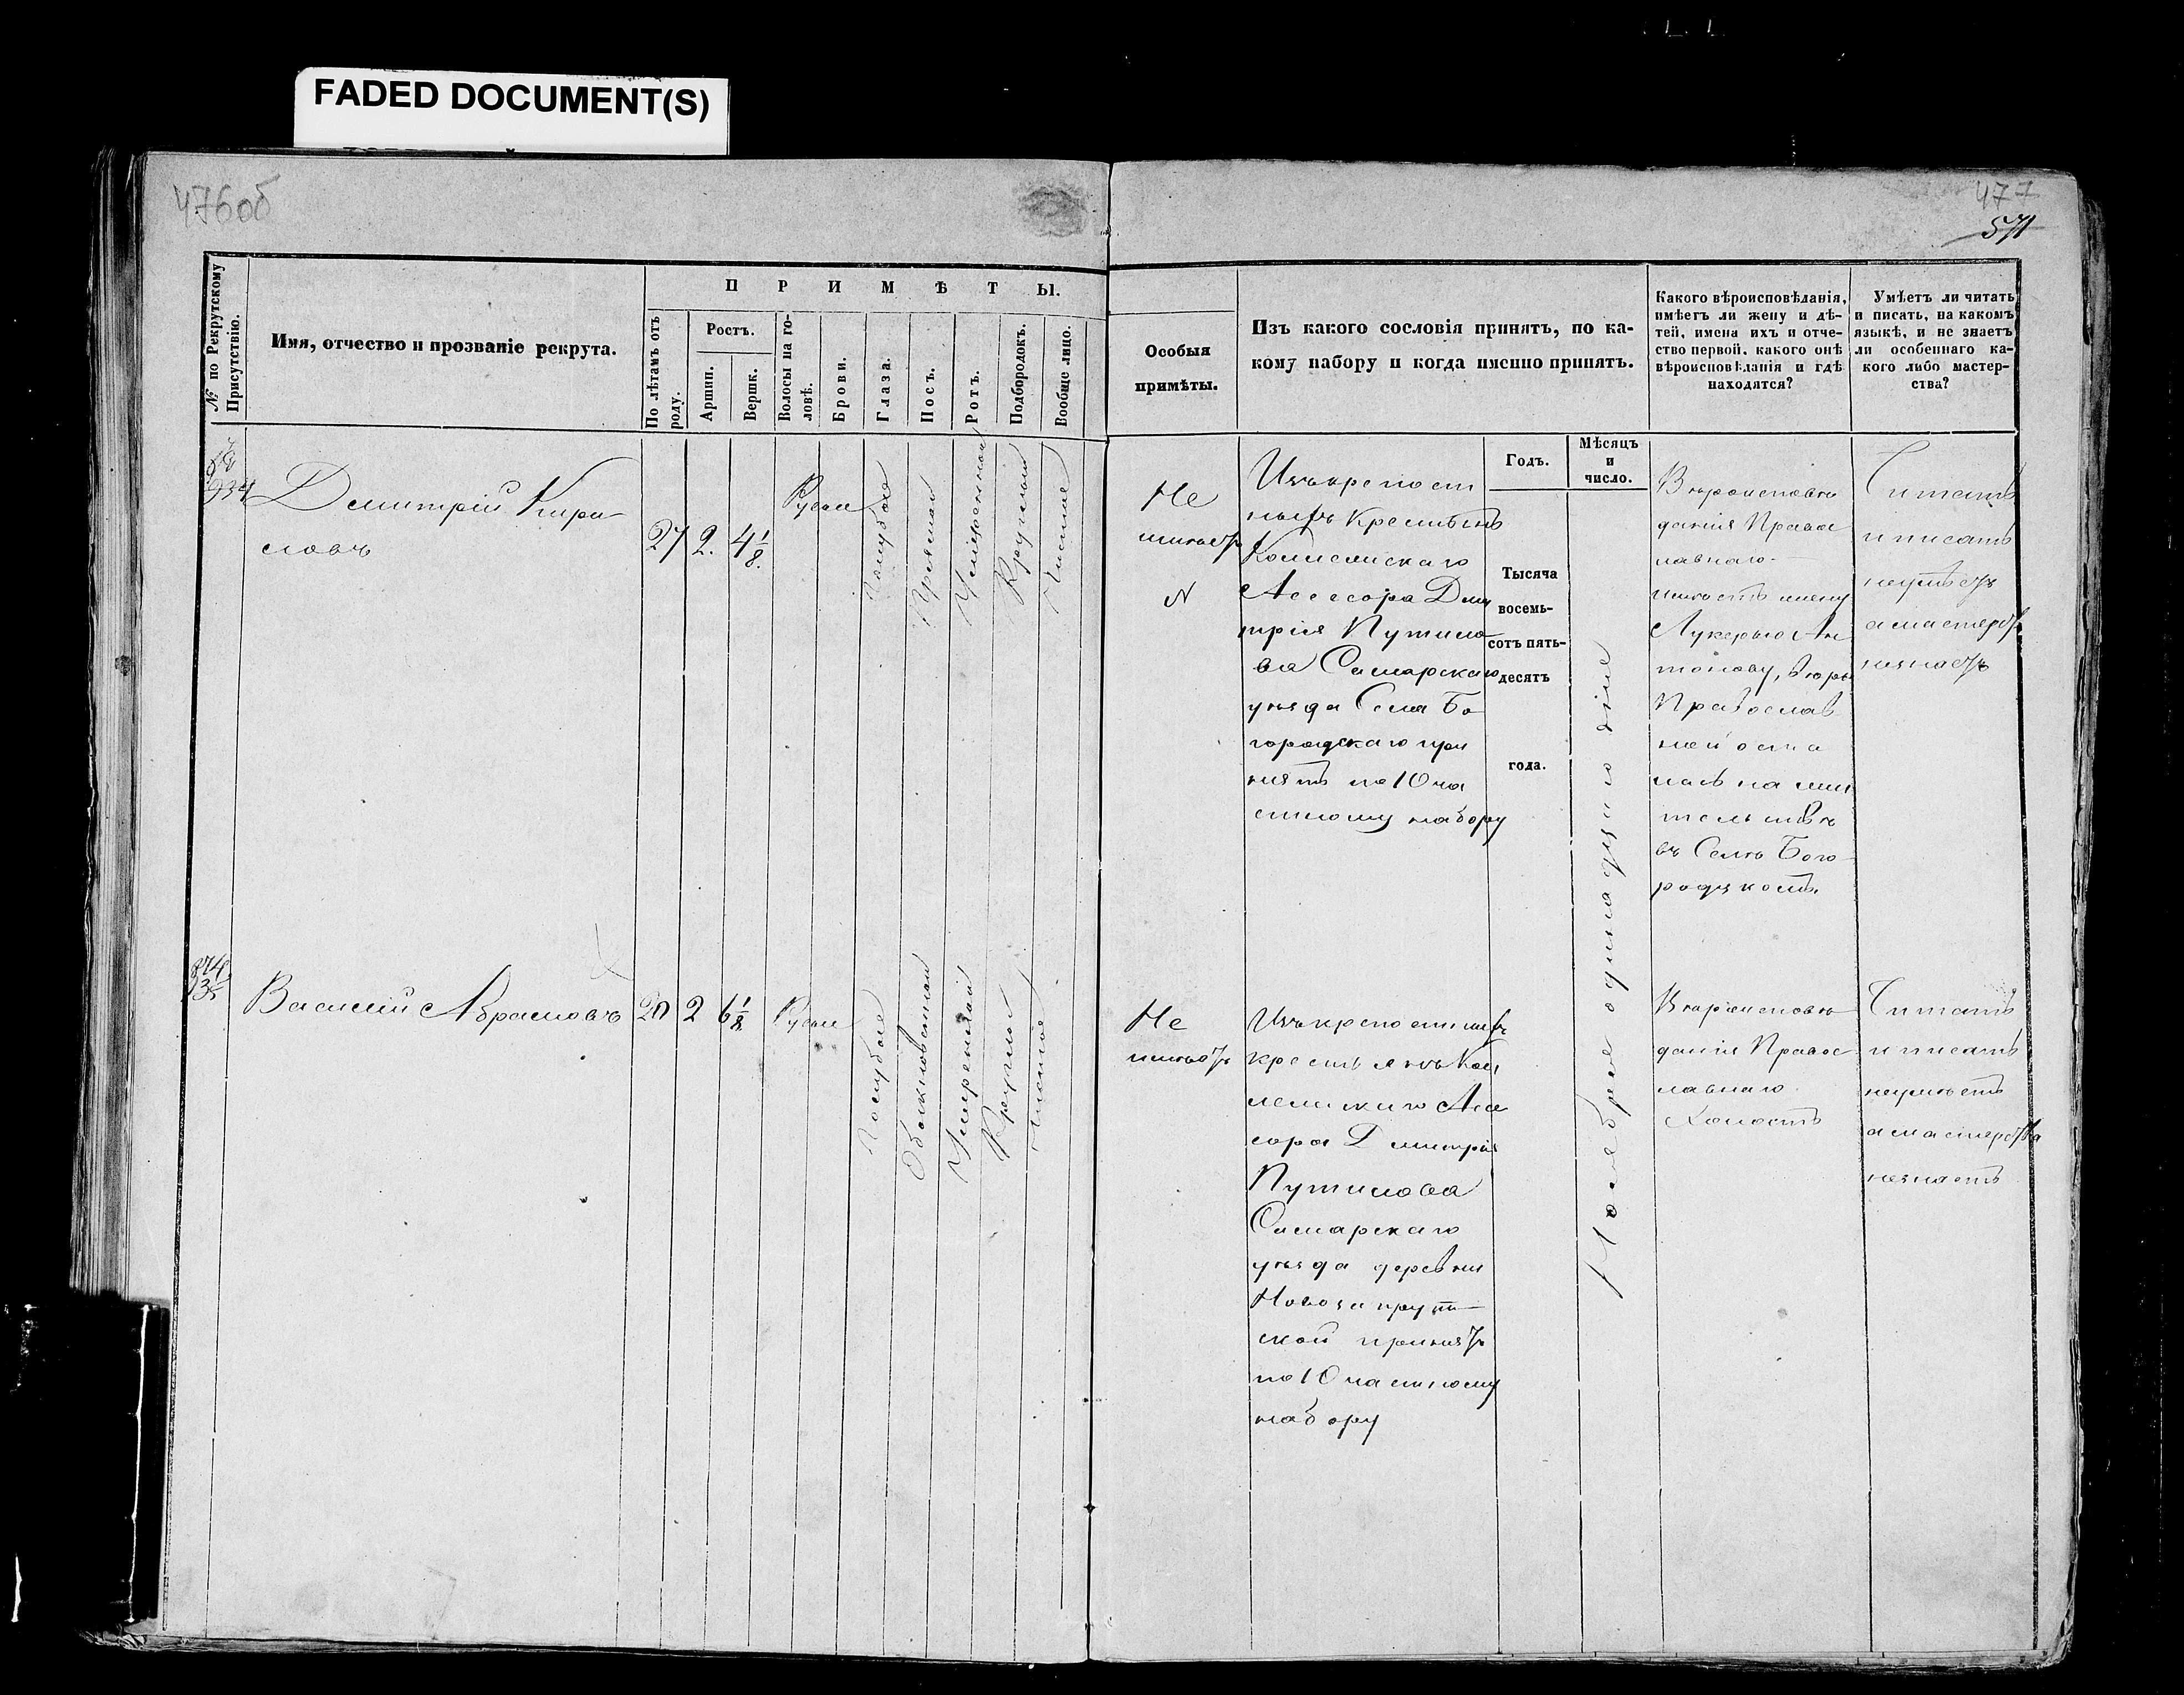 FADED DOCUMENT(S)
476об
477
571
№ по Рекрутскому Присутствію.
Имя, отчество и прозваніе рекрута.
ПРИМѢТЫ.
По лѣтамъ отъ роду.
Ростъ.
Аршин.
Вершк.
Волосы на головѣ.
Брови.
Глаза.
Носъ.
Ротъ.
Подбородокъ.
Вообще лицо.
Особыя
примѣты.
Изъ какого сословія принятъ, по ка-
кому набору и когда именно принятъ.
Какого вѣроисповѣданія,
имѣетъ ли жену и дѣ-
тей, имена ихъ и отче-
ство первой, какого онѣ
вѣроисповѣданія и гдѣ
находятся?
Умѣетъ ли читать
и писать, на какомъ
языкѣ, и не знаетъ
ли особеннаго ка-
кого либо мастер-
ства?
Годъ.
Мѣсяцъ
и
число.
934
Дмитрій Кири
ловъ
27
2.
4 1/8.
Русые
Голубые
Прямой
Умеренной
Круглой
Чистое
Не
имѣетъ
Изъ крепост
ныхъ Крестьянъ
Колежскаго
Асессора Дми
трія Путило
ва Самарскаго
уѣзда Села Бо
городскаго при
нятъ по 10 ча
стному набору
Тысяча
восемь-
сотъ пять-
десятъ
года.
Ноября одинадцатого дня
Вѣроисповѣ
данія Правос
лавнаго
имѣетъ жену
Лукерью Ан
тонову, вѣры
Православ
ной оста
лась на жи
тельствѣ
въ Селѣ Бого
родскомъ.
Читать
и писать
неумѣетъ
а мастерст
незнаетъ
874
935
Василий Абрамовъ
20
2
6 1/8
Русые
Голубые
Обыкновенной
Умеренной
Круглой
Чистое
Не
имѣетъ
Изъ крепостныхъ
крестьянъ Кол
лежскаго Асе
сора Дмитрія
Путилова
Самарскаго
уѣзда деревни
ской принятъ
по 10 частному
набору
Вѣроисповѣ
данія Правос
лавнаго
Холостъ
Читать
и писать
неумѣетъ
а мастерства
незнаетъ